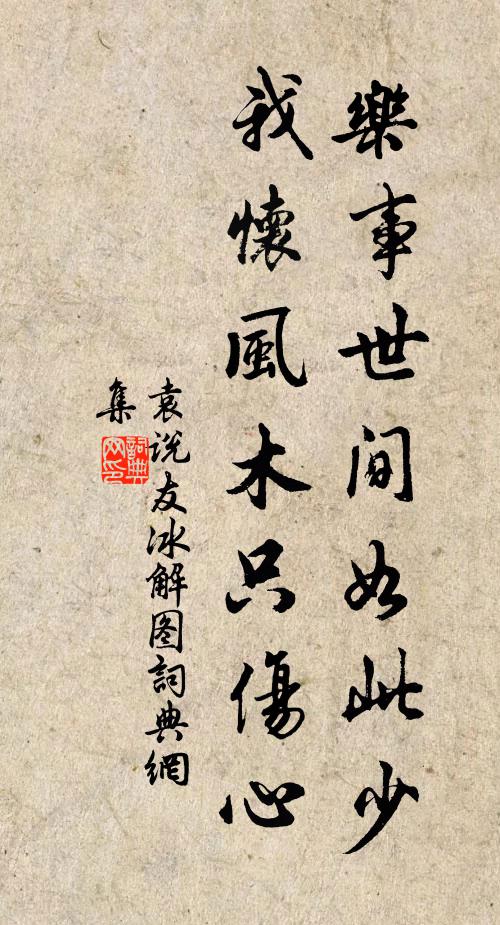 樂事世間如此少
我懷風木只傷心
袁说友冰解图詞典網
集
詞典
网印